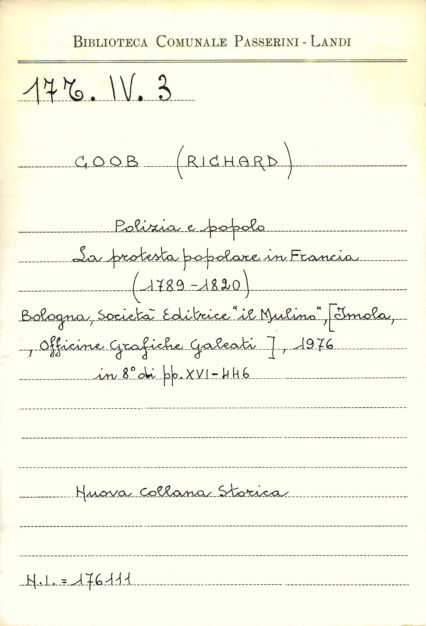 BIBLIOTECA COMUNALE PASSERINI - LANDI
17T. IV. 3
GOOB (RICHARD)
Polizia e popolo
La protesta popolare in Francia
(1789-1820)
Bologna, Società Editrice "il Mulino", [Imola,
, Officine Grafiche Galeati ], 1976
in 8° di pp. XVI-446
Nuova Collana Storica
N.I. = 176111